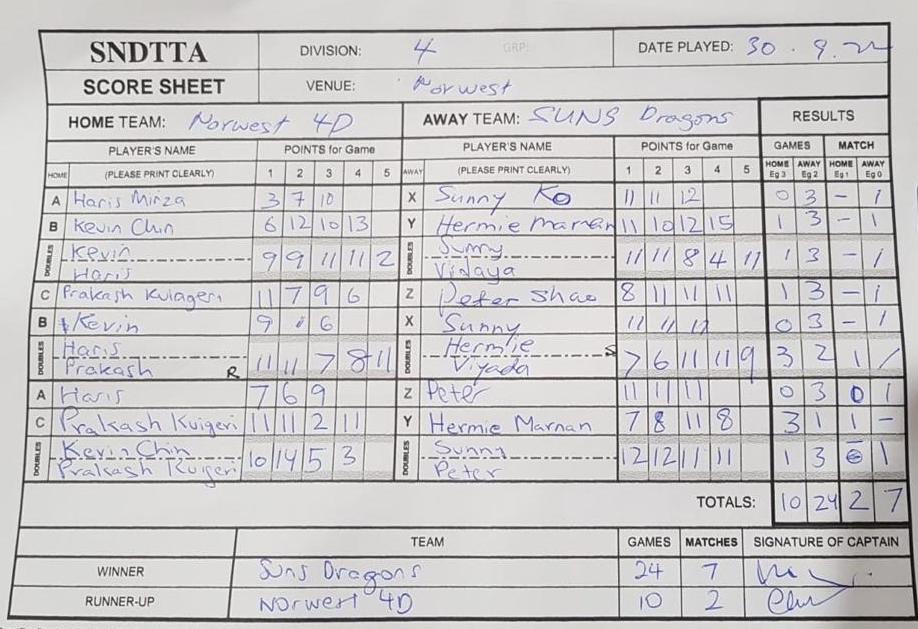 SNDTTA DIVISION: 4 GRP: DATE PLAYED: 30.9.22
SCORE SHEET VENUE: Norwest
HOME TEAM: Norwest 4D AWAY TEAM: SUNS Dragons RESULTS
PLAYER'S NAME POINTS for Game PLAYER'S NAME POINTS for Game GAMES MATCH
HOME (PLEASE PRINT CLEARLY) 1 2 3 4 5 AWAY (PLEASE PRINT CLEARLY) 1 2 3 4 5 HOME Eg 3 AWAY Eg 2 HOME Eg 1 AWAY Eg 0
A Haris Mirza 3 7 10 X Sunny Ko 11 11 12 0 3 - 1
B Kevin Chin 6 12 10 13 Y Hermie Marnan 11 10 12 15 1 3 - 1
DOUBLES Kevin Haris 9 9 11 11 2 DOUBLES Sunny Vidaya 11 11 8 4 11 1 3 - 1
C Prakash Kulageri 11 7 9 6 Z Peter Shao 8 11 11 11 1 3 - 1
B Kevin 9 6 X Sunny 11 11 0 3 - 1
DOUBLES Haris Prakash R 11 11 7 8 11 DOUBLES Hermie Viyada S 7 6 11 11 9 3 2 1 /
A Haris 7 6 9 Z Peter 11 11 11 0 3 0 1
C Prakash Kuigeri 11 11 2 11 Y Hermie Marnan 7 8 11 8 3 1 1 -
DOUBLES Kevin Chin Prakash Kuigeri 10 14 5 3 DOUBLES Sunny Peter 12 12 11 11 1 3 0 1
TOTALS: 10 24 2 7
TEAM GAMES MATCHES SIGNATURE OF CAPTAIN
WINNER Suns Dragons 24 7
RUNNER-UP Norwest 4D 10 2